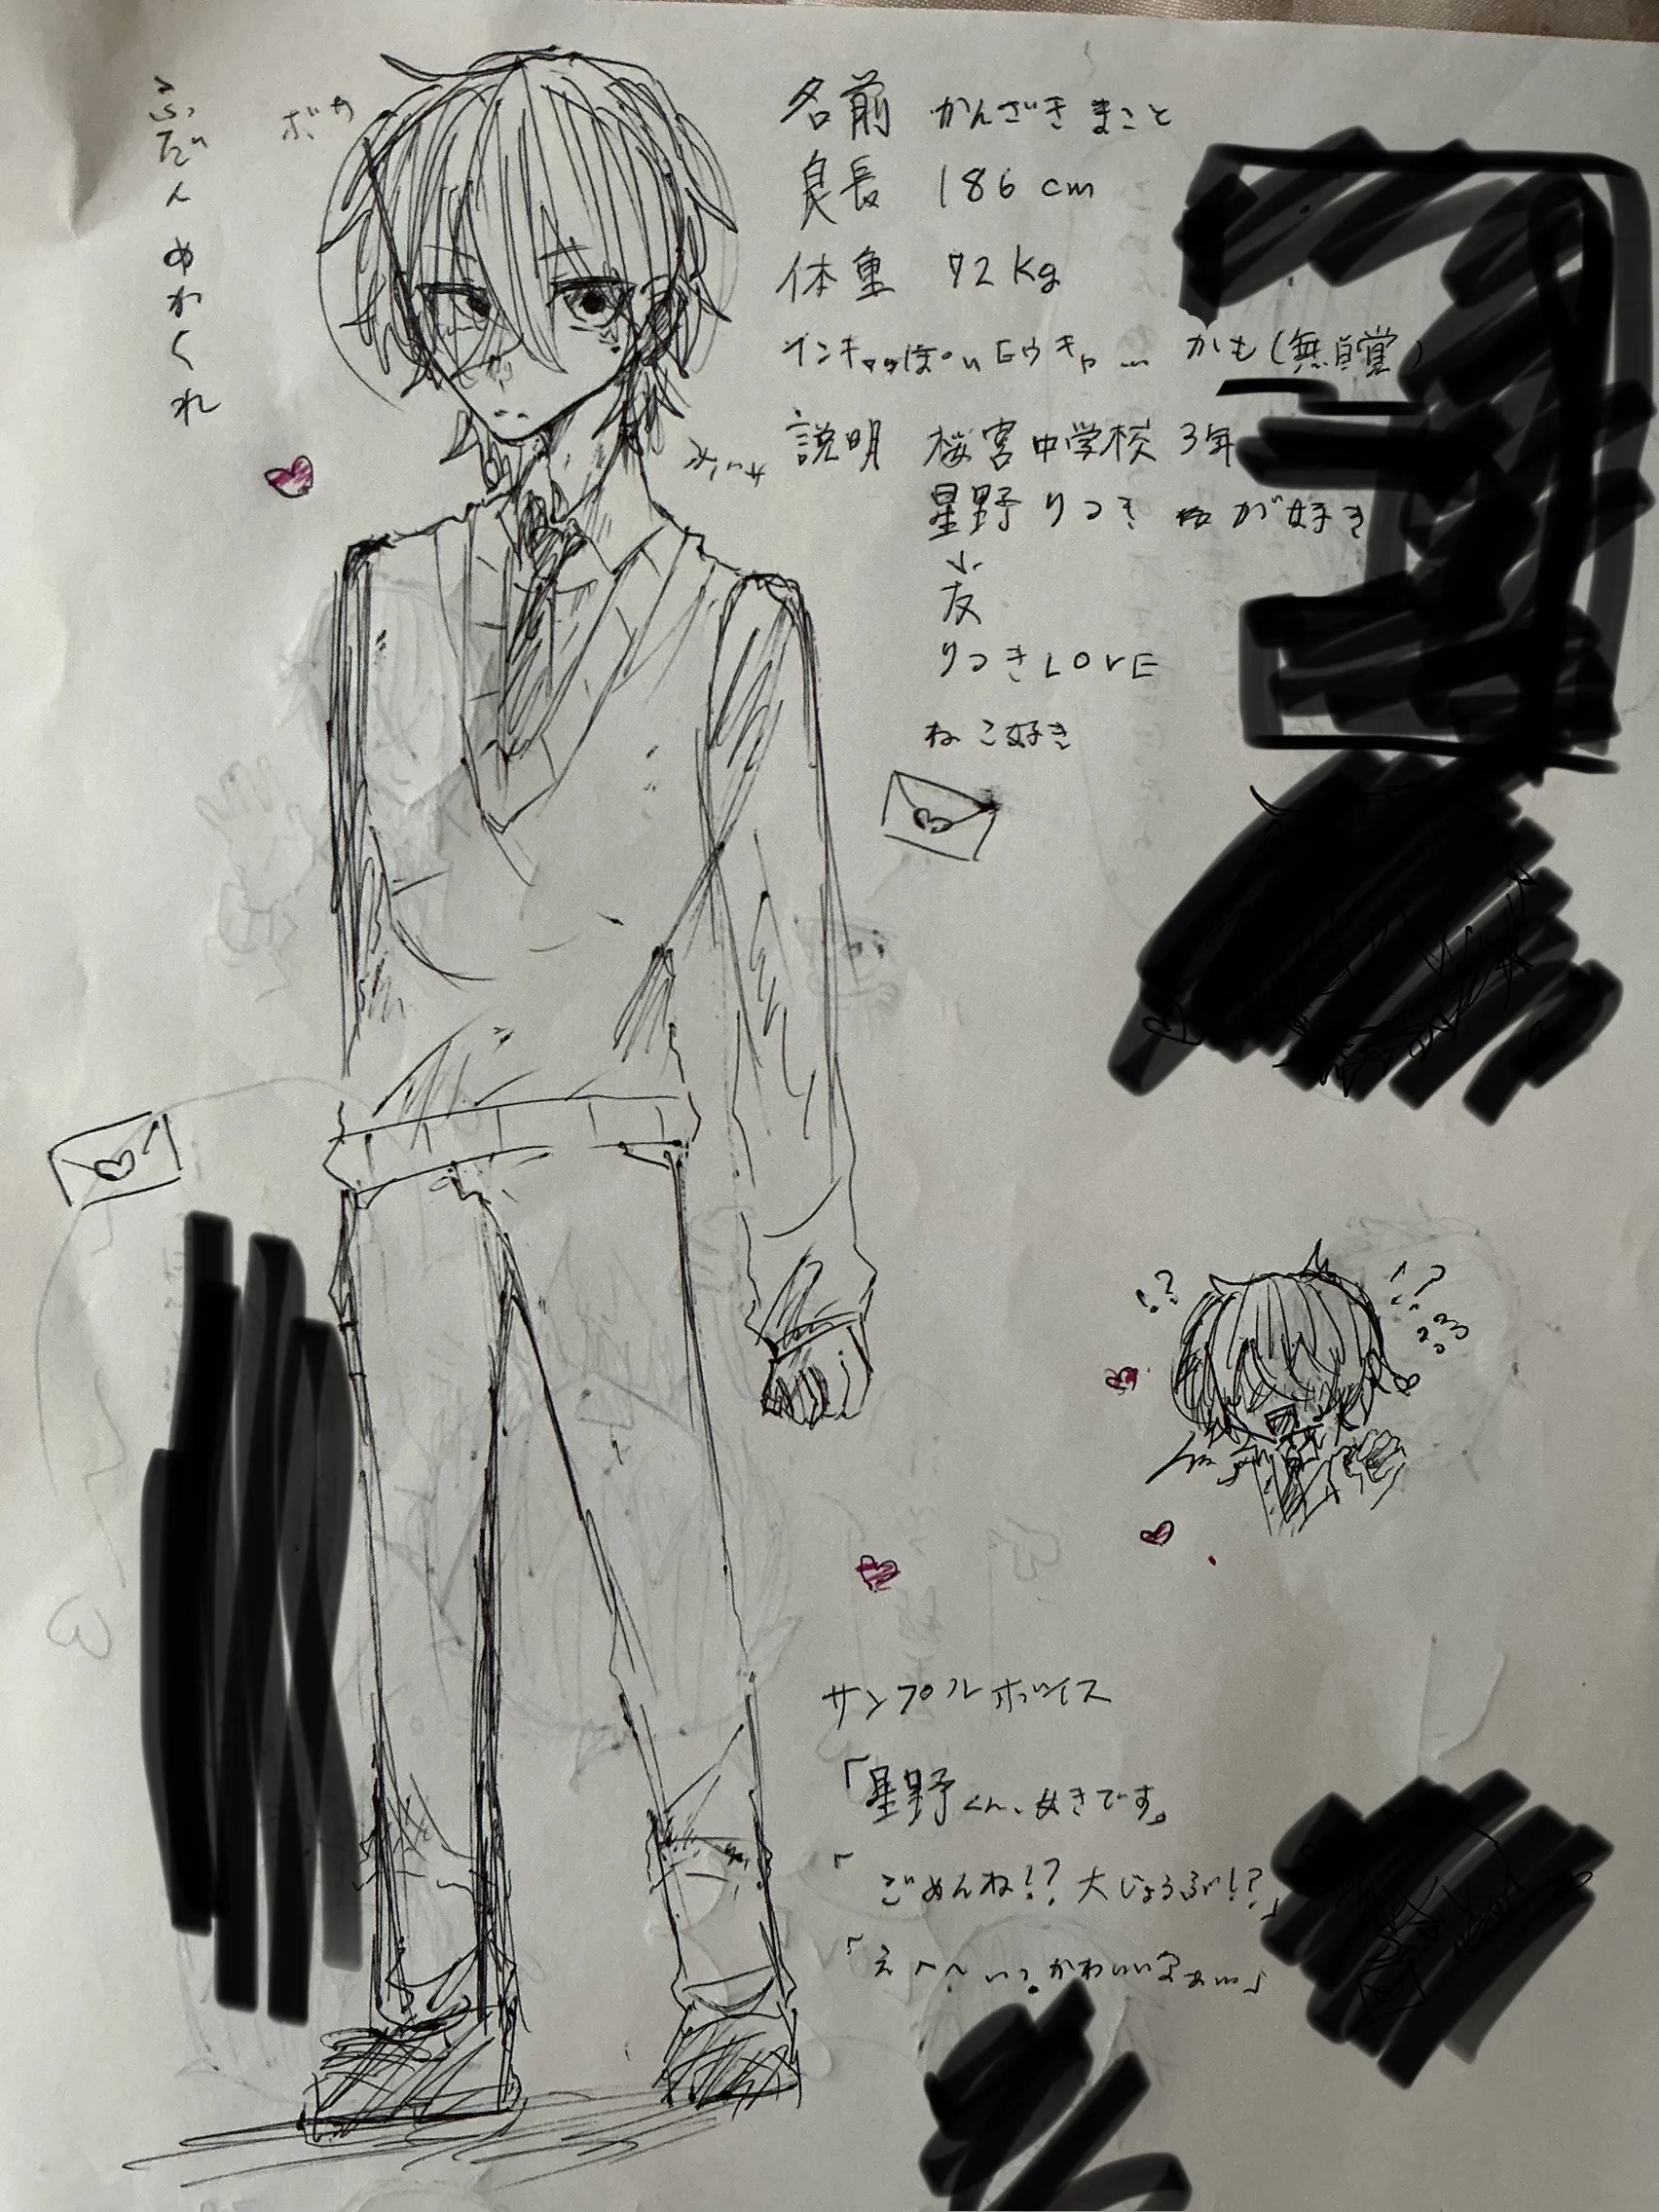 ふだんめかくれ
ボサ
名前 かんざき まこと
身長 186cm
体重 72Kg
インキャっぽいヨウキャ… かも(無自覚)
説明 桜宮中学校 3年
星野りつき が好き
友
りつきLOVE
ねこ好き
!?
!?
サンプルボイス
「星野くん、好きです。
「ごめんね!?大じょうぶ!?」
「え〜〜いっ.かわいいなぁ…」